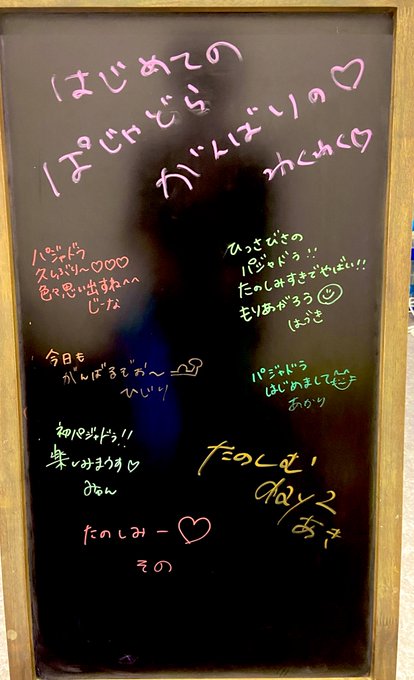 はじめての
ぱじゃどら
がんばりの♡
わくわく♡
パジャドラ
久しぶり〜♡♡♡
色々思い出すねへへ
じーな
ひっさびさの
パジャドラ!!
たのしみすきでやばい!!
もりあがろう
はづき
今日も
がんばるぞお〜
ひじり
パジャドラ
はじめまして
あかり
初パジャドラ!!
楽しみまうす♡
みるん
たのしむ
day2
あき
たのしみー♡
その